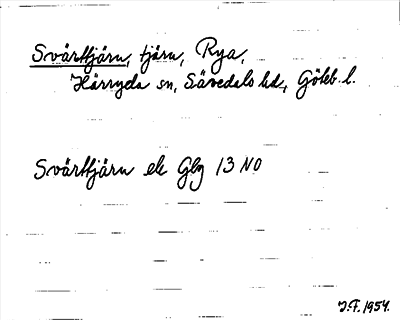 Svärttjärn, tjärn, Rya,
Härryda sn, Sävedals hd., Göteb. l.
Svärttjärn ek Gbg 13 NO
J.F. 1954.